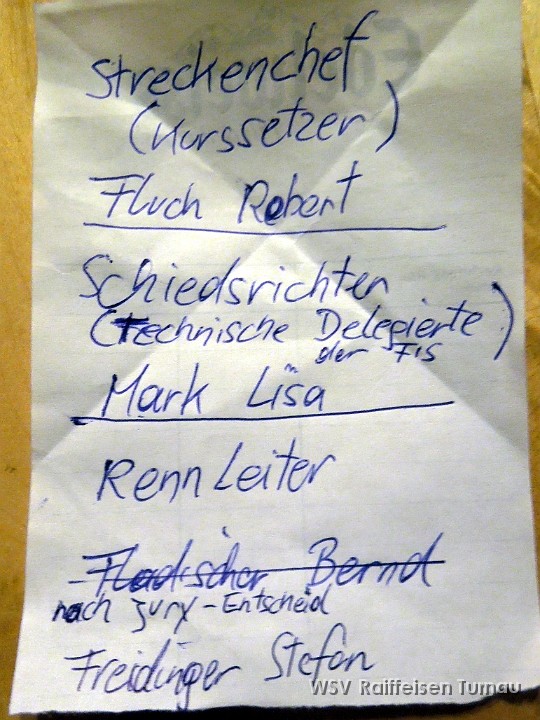 Streckenchef
(Kurssetzer)
Fluch Robert
Schiedsrichter
(Technische Delegierte)
der FIS
Mark Lisa
Renn Leiter
- Fladischer Bernd
nach Jury-Entscheid
Freidinger Stefan
WSV Raiffeisen Turnau